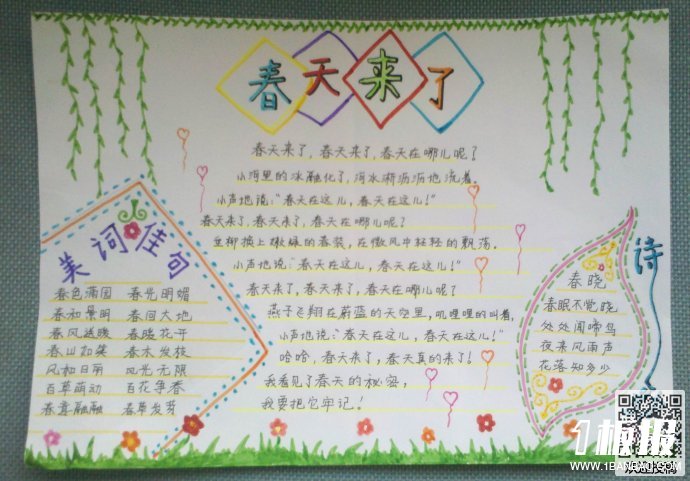 春天来了
春天来了，春天来了，春天在哪儿呢？
小河里的冰融化了，河水淅沥沥地流着。
小声地说：“春天在这儿，春天在这儿！”
春天来了，春天来了，春天在哪儿呢？
垂柳换上嫩绿的春装，在微风中轻轻的飘荡。
小声地说：“春天在这儿，春天在这儿！”
春天来了，春天来了，春天在哪儿呢？
燕子飞翔在蔚蓝的天空里，叽哩哩的叫着，
小声地说：“春天在这儿，春天在这儿！”
哈哈，春天来了，春天真的来了！
我看见了春天的秘密，
我要把它牢记！
美词佳句
春色满园 春光明媚
春和景明 春回大地
春风送暖 春暖花开
春山如笑 春木发枝
风和日丽 风光无限
百草萌动 百花争春
春意融融 春草发芽
诗
春晓
春眠不觉晓
处处闻啼鸟
夜来风雨声
花落知多少
1板报
WWW.1BANBAO.COM
欢迎投稿